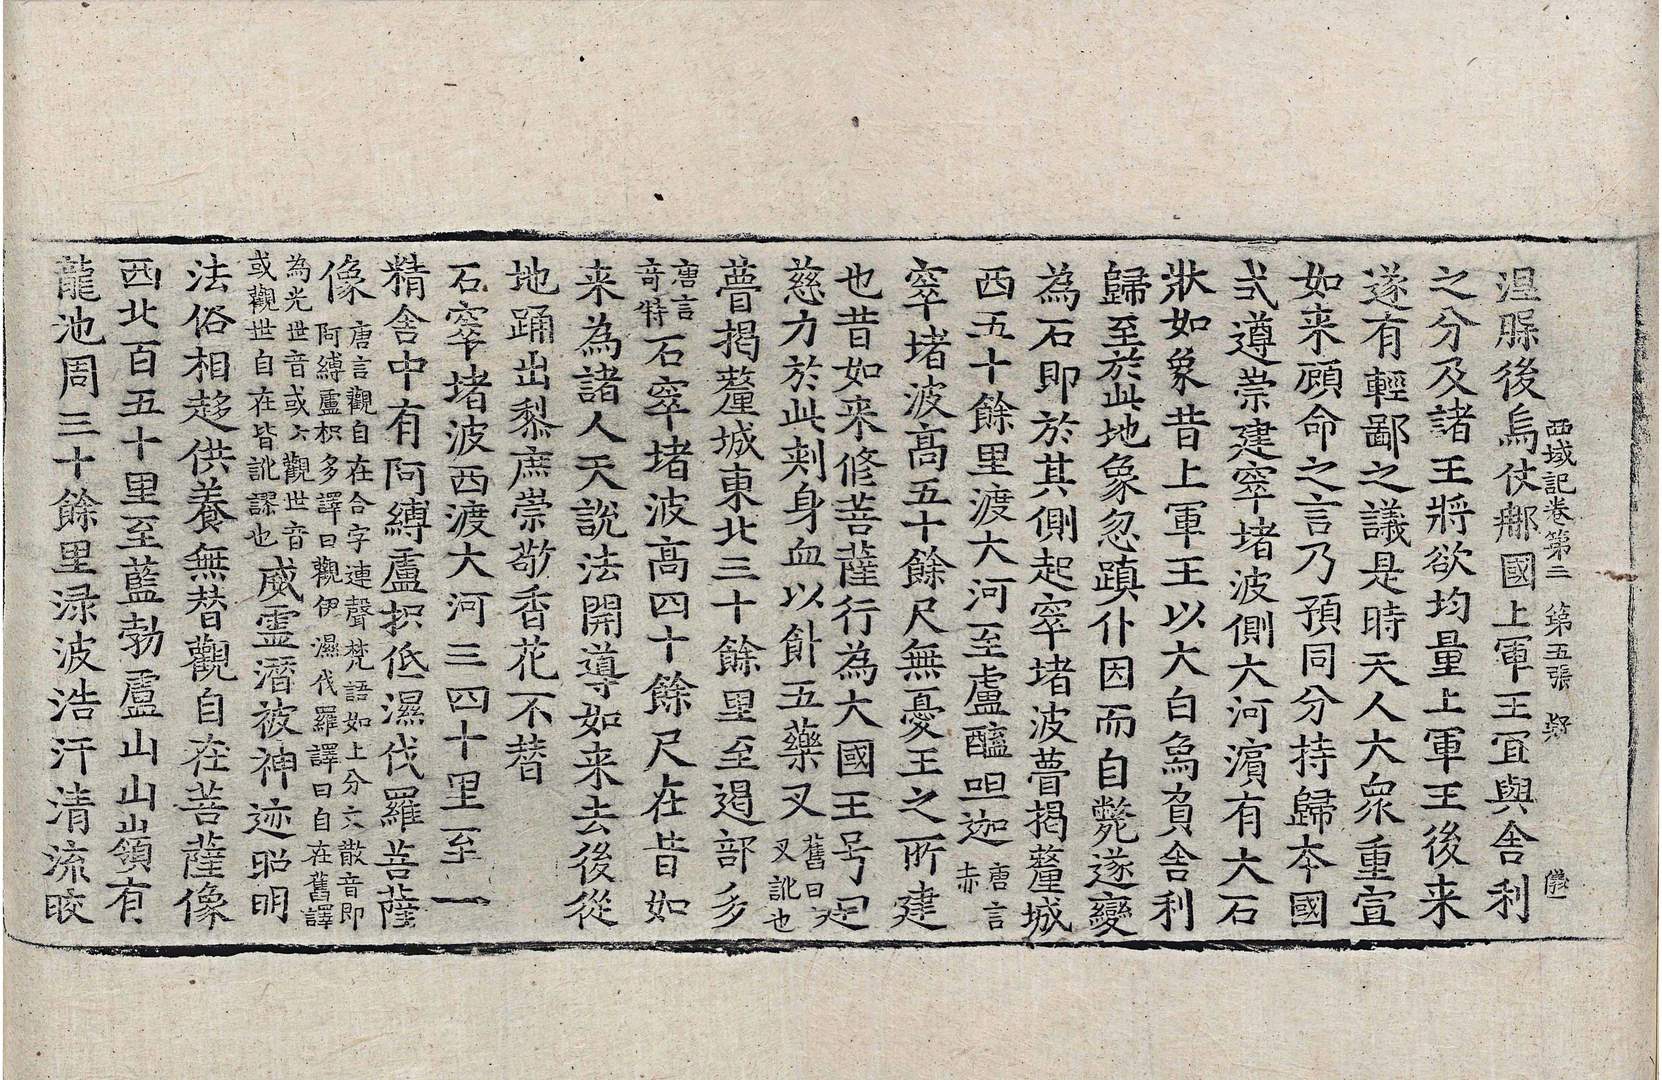 西域記卷第三 第五張 疑 儀
涅槃後烏仗那國上軍王冝與舍利
之分及諸王將欲均量上軍王後来
遂有輕鄙之議是時天人大衆重宣
如来顧命之言乃預同分持歸本國
式遵崇建窣堵波側大河濱有大石
狀如象昔上軍王以大白象負舍利
歸至於此地象忽蹎仆因而自斃遂變
為石即於其側起窣堵波瞢揭釐城
西五十餘里渡大河至盧醯呾迦唐言赤
窣堵波高五十餘尺無憂王之所建
也昔如来修菩薩行為大國王号曰
慈力於此刺身血以飤五藥叉舊曰夜叉訛也
瞢揭釐城東北三十餘里至遏部多
唐言奇特石窣堵波高四十餘尺在昔如
来為諸人天說法開導如来去後從
地踊出黎庶崇敬香花不替
石窣堵波西渡大河三四十里至一
精舍中有阿縛盧枳低濕伐羅菩薩
像唐言觀自在合字連聲梵語如上分文散音即阿縛盧枳多譯曰觀伊濕伐羅譯曰自在舊譯
為光世音或云觀世音或觀世自在皆訛謬也威靈潛被神迹昭明
法俗相趍供養無替觀自在菩薩像
西北百五十里至藍勃盧山山嶺有
龍池周三十餘里淥波浩汗清流皎